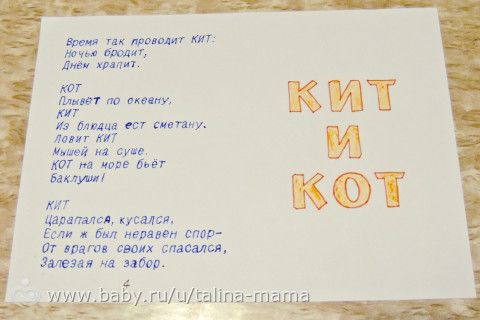 Время так проводит КИТ:
Ночью бродит,
Днём храпит.
КОТ
Плывёт по океану,
КИТ
Из блюдца ест сметану.
Ловит КИТ
Мышей на суше.
КОТ на море бьёт
Баклуши!
КИТ
Царапался, кусался,
Если ж был неравен спор-
От врагов своих спасался,
Залезая на забор.
4
КИТ
И
КОТ
www.baby.ru/u/talina-mama